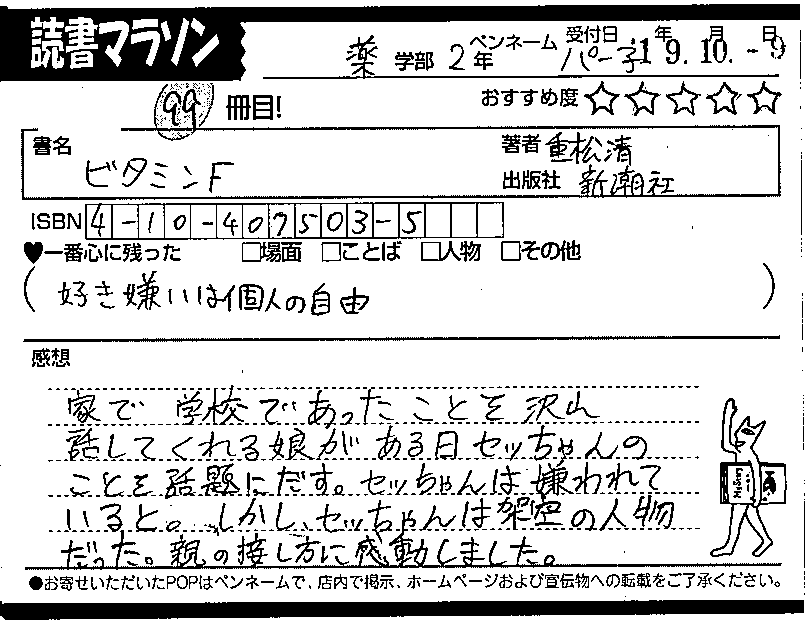 読書マラソン
薬 学部 2年 ペンネーム パー子 受付日 年 月 日 19.10.-9
99 冊目!
おすすめ度 ☆☆☆☆☆
書名 ビタミンF
著者 重松清
出版社 新潮社
ISBN 4-10-407503-5
♥一番心に残った □場面 □ことば □人物 □その他
(好き嫌いは個人の自由)
感想
家で学校であったことを沢山
話してくれる娘がある日セッちゃんの
ことを話題にだす。セッちゃんは嫌われて
いると。しかし、セッちゃんは架空の人物
だった。親の接し方に感動しました。
●お寄せいただいたPOPはペンネームで、店内で掲示、ホームページおよび宣伝物への転載をご了承ください。